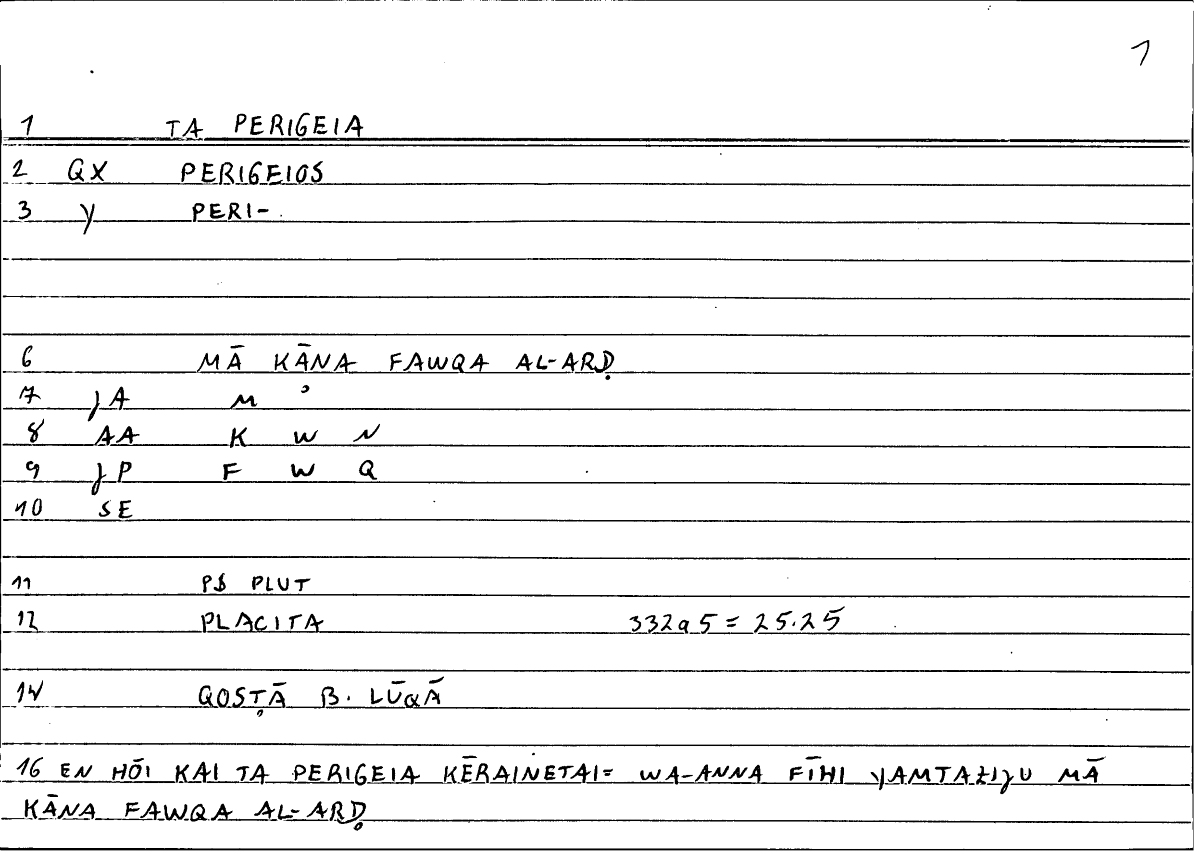 1
1 TA PERIGEIA
2 QX PERIGEIOS
3 y PERI-
6 MĀ KĀNA FAWQA AL-ARḌ
7 ȷA M ʾ
8 AA K W N
9 ȷP F W Q
10 SE
11 PS PLUT
12 PLACITA 332a5 = 25.25
14 QOSṬĀ B. LŪQĀ
16 EN HŌI KAI TA PERIGEIA KĒRAINETAI= WA-ANNA FĪHI YAMTAZIȷU MĀ
KĀNA FAWQA AL-ARḌ